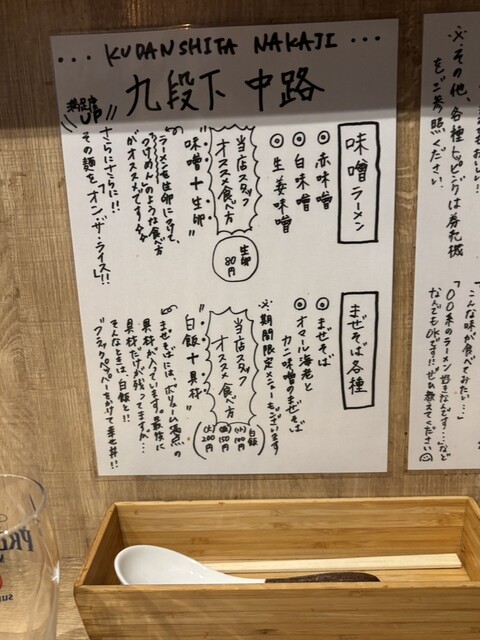 ... KUDANSHITA NAKAJI ...
九段下 中路
味噌ラーメン
◎ 赤味噌
◎ 白味噌
◎ 生姜味噌
当店スタッフ
オススメ食べ方
"味噌+生卵"
生卵
80円
ラーメンを生卵につけて、
つけめんのような食べ方
がオススメです☆☆
さらにさらに!!
その麺を「オン・ザ・ライス」!!
満足度
UP
まぜそば各種
◎ まぜそば
◎ オマール海老と
カニ味噌のまぜそば
※期間限定メニューもございます
当店スタッフ
オススメ食べ方
"白飯+具材"
白飯
(小)100円
(中)150円
(大)200円
まぜそばには、ボリューム満点の
具材が入っています。最後に
具材だけが残ってますが…
そんなときは白飯と!!
ブラックペッパーをかけて幸せ丼!!
※その他、各種トッピングは券売機
をご参照ください
こんな味が食べてみたい…」
「〇〇系のラーメン好きなんです…」など
なんでもOKです!ぜひ教えてください☺